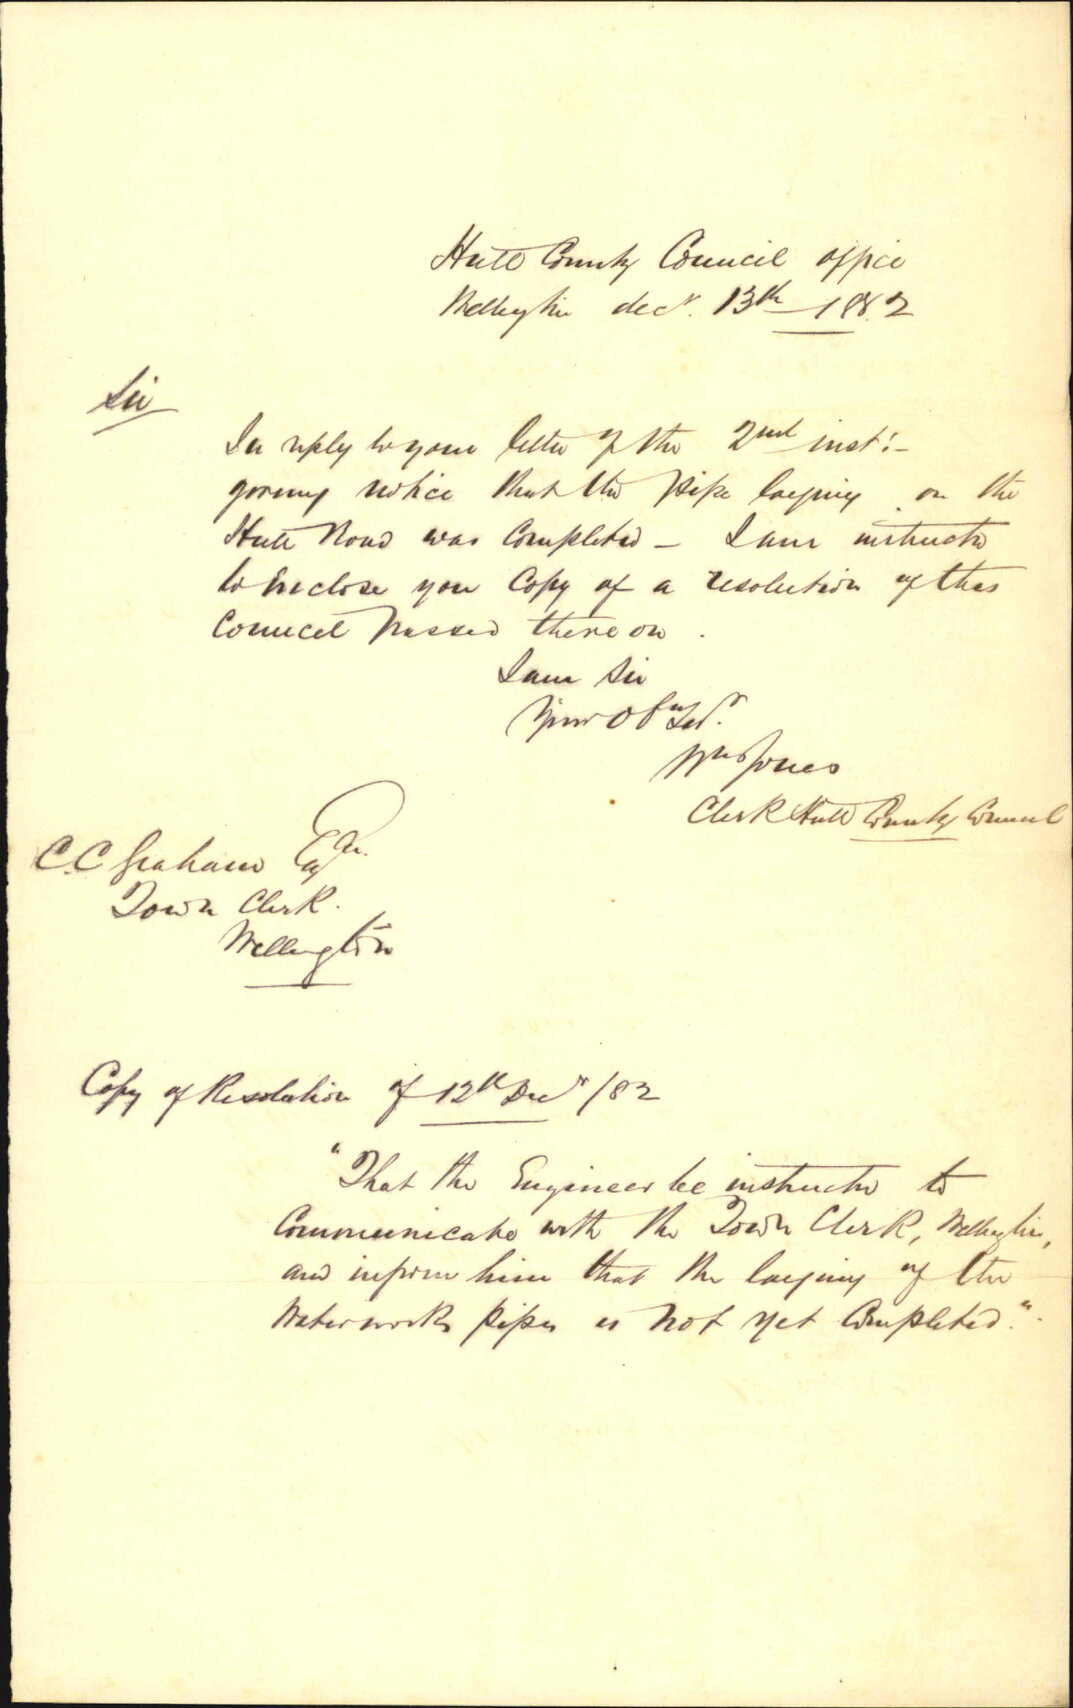 Hutt County Council office
Wellington decr. 13th 1882
Sir
In reply to your letter of the 2nd inst:-
giving notice that the pipe laying on the
Hutt Road was Completed - I am instructed
to Enclose you Copy of a resolution of this
Council Passed there on.
I am Sir
Your Obt Servt.
Wm Jones
Clerk Hutt County Council
C.C Graham Esqr.
Town Clerk.
Wellington
Copy of Resolution of 12th Decr /82
"That the Engineer be instructed to
Communicate with the Town Clerk, Wellington,
and inform him that the laying of the
Waterworks pipes is Not yet Completed."